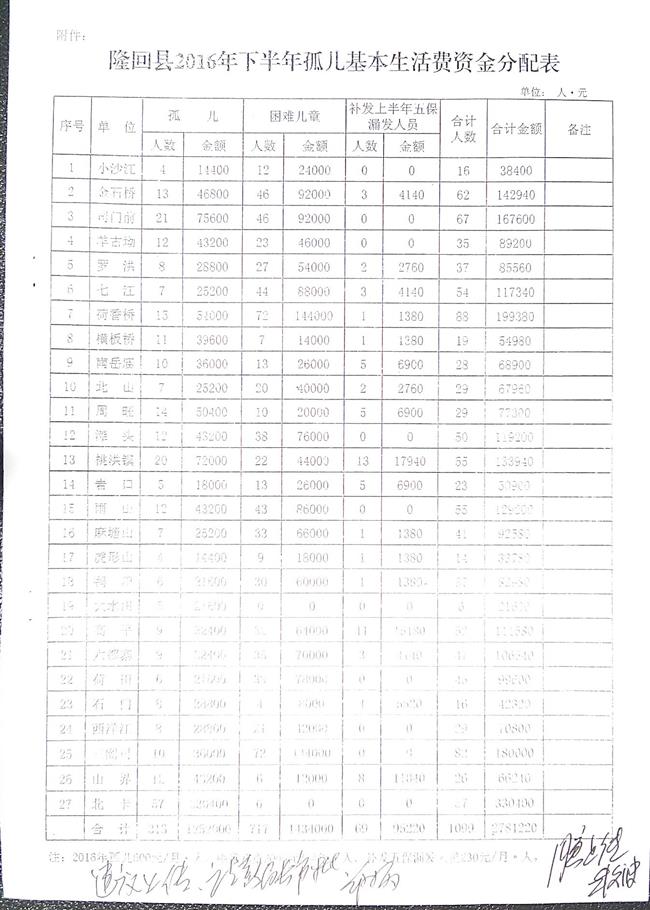 附件：
隆回县2016年下半年孤儿基本生活费资金分配表
单位： 人·元
序号 单位 孤儿 困难儿童 补发上半年五保漏发人员 合计人数 合计金额 备注
人数 金额 人数 金额 人数 金额
1 小沙江 4 14400 12 24000 0 0 16 38400
2 金石桥 13 46800 46 92000 3 4140 62 142940
3 司门前 21 75600 46 92000 0 0 67 167600
4 羊古坳 12 43200 23 46000 0 0 35 89200
5 罗洪 8 28800 27 54000 2 2760 37 85560
6 七江 7 25200 44 88000 3 4140 54 117340
7 荷香桥 15 54000 72 144000 1 1380 88 199380
8 横板桥 11 39600 7 14000 1 1380 19 54980
9 南岳庙 10 36000 13 26000 5 6900 28 68900
10 北山 7 25200 20 40000 2 2760 29 67960
11 周旺 14 50400 10 20000 5 6900 29 77300
12 滩头 12 43200 38 76000 0 0 50 119200
13 桃洪镇 20 72000 22 44000 13 17940 55 133940
14 岩口 5 18000 13 26000 5 6900 23 50900
15 雨山 12 43200 43 86000 0 0 55 129200
16 麻塘山 7 25200 33 66000 1 1380 41 92580
17 虎形山 4 14400 9 18000 1 1380 14 33780
18 6 21600 30 60000 1 1380 37 82980
19 大水田 0 0 0 0 6 21600
20 高平 9 32400 64000 11 15180 52 111580
21 六都寨 9 32400 35 70000 3 4140 47 106540
22 荷田 6 21600 0 0 45 99600
23 石门 8 28800 4 8000 4 5520 16 42320
24 西洋江 8 28800 21 42000 0 0 29 70800
25 三阁司 10 36000 72 144000 0 0 82 180000
26 山界 12 43200 6 12000 8 11040 26 66240
27 57 0 0 0 0 57 330400
合计 313 717 1434000 69 95220 1099 2781220
注：2016年孤儿600元/月·人，
人、补发五保漏发人员230元/月·人。